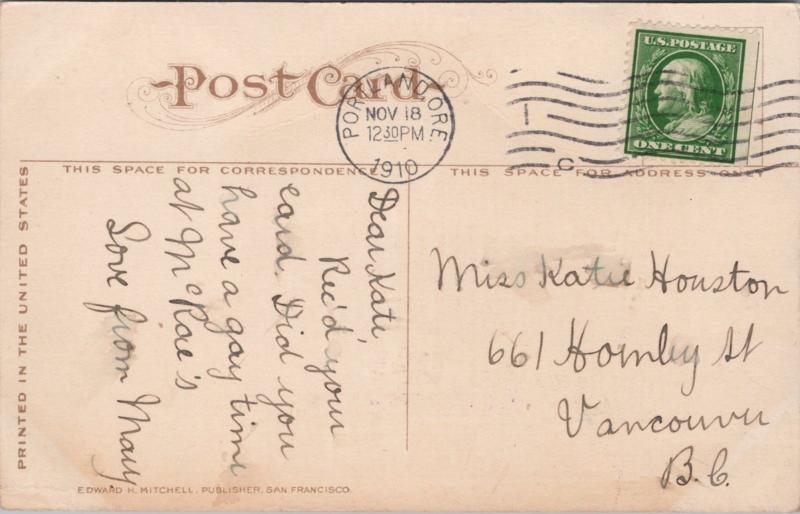 Post Card
PORTLAND, ORE.
NOV 18
12 30 PM
1910
U.S. POSTAGE
ONE CENT
1
C
THIS SPACE FOR CORRESPONDENCE
THIS SPACE FOR ADDRESS ONLY
PRINTED IN THE UNITED STATES
Dear Kate
Rec'd your
card. Did you
have a gay time
at McRae's
Love from Mary
Miss Katie Houston
661 Hornby St
Vancouver
B.C.
EDWARD H. MITCHELL, PUBLISHER, SAN FRANCISCO.